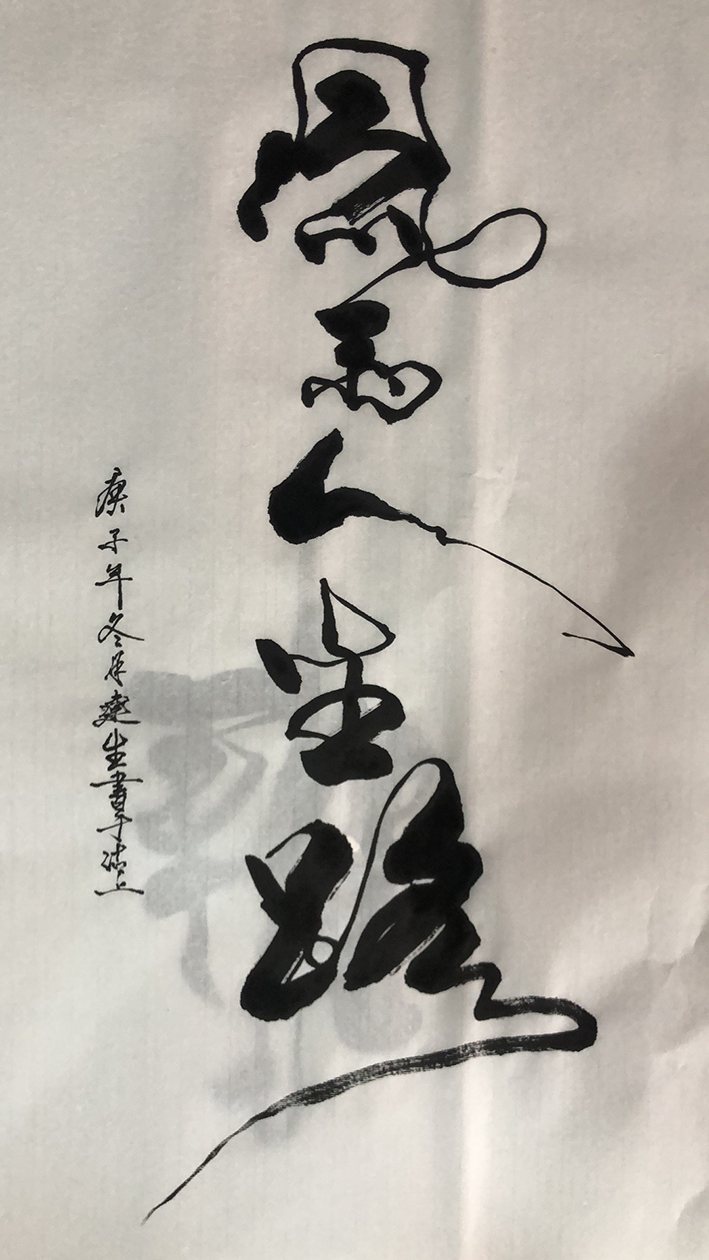 风雨人生路
庚子年冬月建生書于沽上